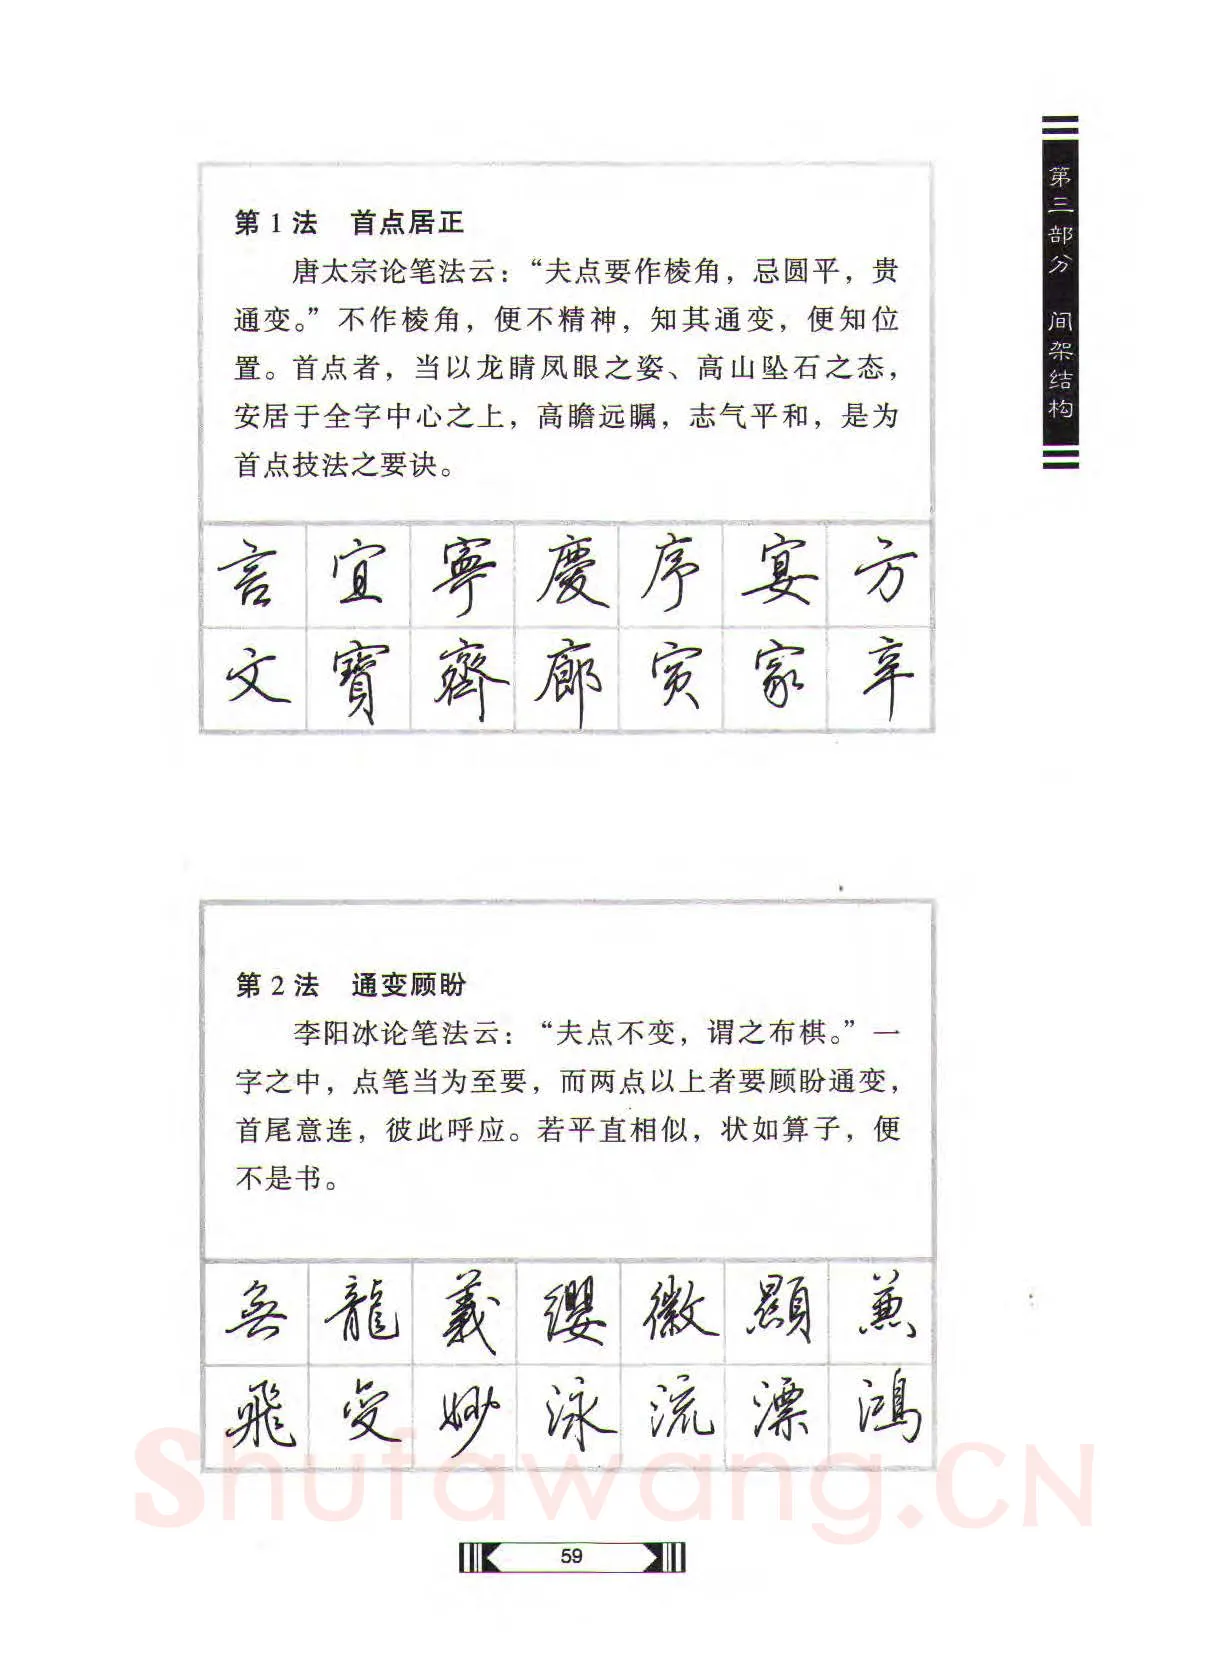 第三部分 间架结构
第1法 首点居正
唐太宗论笔法云：“夫点要作棱角，忌圆平，贵
通变。”不作棱角，便不精神，知其通变，便知位
置。首点者，当以龙睛凤眼之姿、高山坠石之态，
安居于全字中心之上，高瞻远瞩，志气平和，是为
首点技法之要诀。
言 宜 寧 慶 序 宴 方
文 寶 齋 廊 寅 家 辛
第2法 通变顾盼
李阳冰论笔法云：“夫点不变，谓之布棋。”一
字之中，点笔当为至要，而两点以上者要顾盼通变，
首尾意连，彼此呼应。若平直相似，状如算子，便
不是书。
無 龍 義 纓 徽 顯 兼
飛 受 妙 泳 流 漂 鴻
Shufawang.CN
59